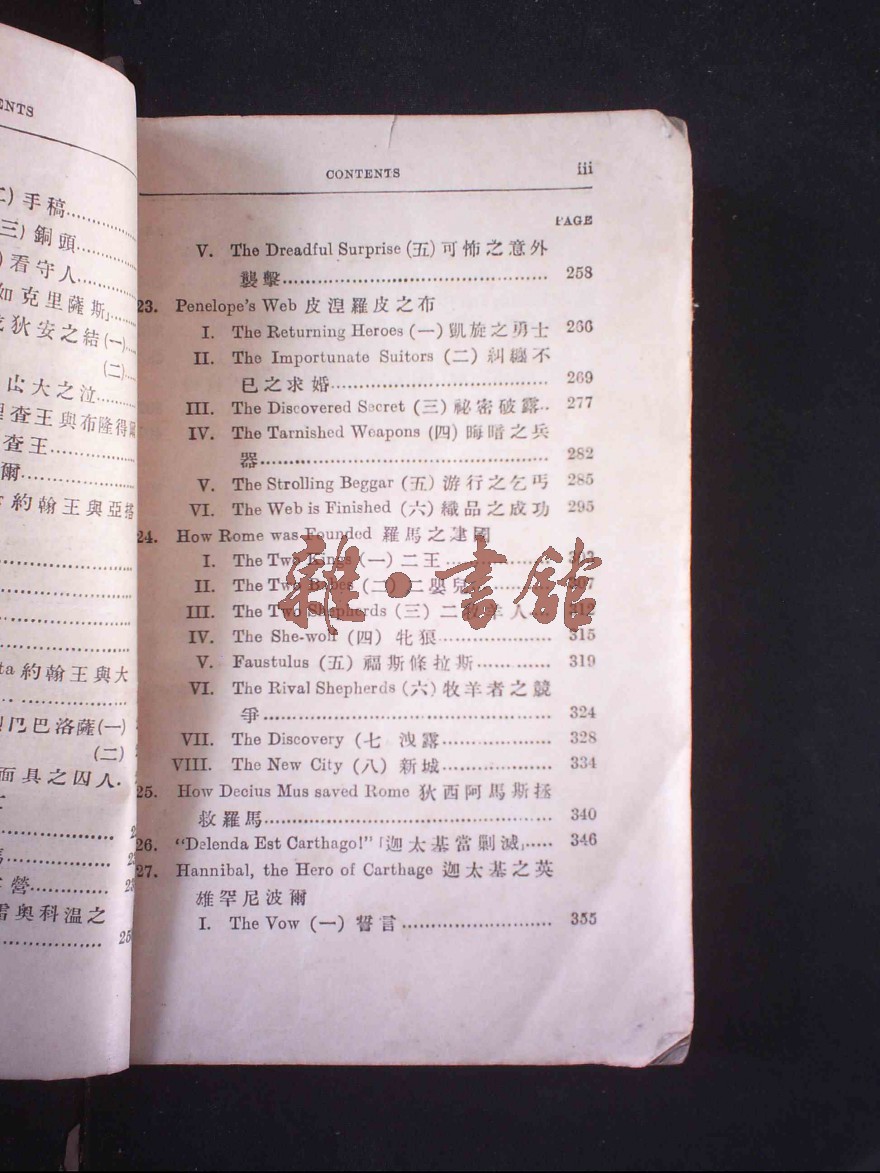 ENTS
手稿
三) 銅頭
看守人
如克里薩斯」
狄安之結 (一)
(二)
大之泣
查王與布隆得
查王
爾
約翰王與亞
ta 約翰王與大
巴洛薩 (一)
(二)
面具之囚人
營
奧科温之
CONTENTS iii
PAGE
V. The Dreadful Surprise (五) 可怖之意外
襲擊 258
23. Penelope's Web 皮涅羅皮之布
I. The Returning Heroes (一) 凱旋之勇士 266
II. The Importunate Suitors (二) 糾纏不
已之求婚 269
III. The Discovered Secret (三) 祕密破露 277
IV. The Tarnished Weapons (四) 晦暗之兵
器 282
V. The Strolling Beggar (五) 游行之乞丐 285
VI. The Web is Finished (六) 織品之成功 295
24. How Rome was Founded 羅馬之建國
I. The Two Kings (一) 二王
II. The Two Babes (二) 二嬰兒 307
III. The Two Shepherds (三) 二牧羊人 312
IV. The She-wolf (四) 牝狼 315
V. Faustulus (五) 福斯條拉斯 319
VI. The Rival Shepherds (六) 牧羊者之競
爭 324
VII. The Discovery (七 洩露 328
VIII. The New City (八) 新城 334
25. How Decius Mus saved Rome 狄西阿馬斯拯
救羅馬 340
26. "Delenda Est Carthago!" 「迦太基當剿滅」 346
27. Hannibal, the Hero of Carthage 迦太基之英
雄罕尼波爾
I. The Vow (一) 誓言 355
雜·書館